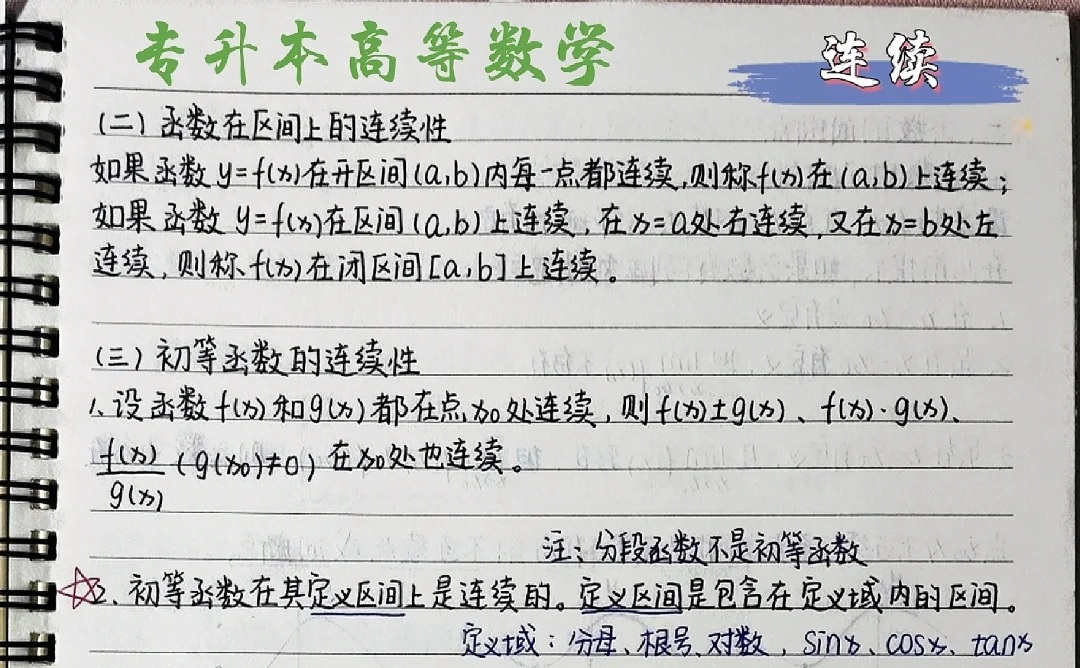 专升本高等数学
连续
(二)函数在区间上的连续性
如果函数y=f(x)在开区间(a,b)内每一点都连续,则称f(x)在(a,b)上连续;
如果函数y=f(x)在区间(a,b)上连续,在x=a处右连续,又在x=b处左
连续,则称f(x)在闭区间[a,b]上连续。
(三)初等函数的连续性
1.设函数f(x)和g(x)都在点x0处连续,则f(x)±g(x)、f(x)·g(x)、
f(x)/g(x) (g(x0)≠0)在x0处也连续。
注:分段函数不是初等函数
☆2.初等函数在其定义区间上是连续的。定义区间是包含在定义域内的区间。
定义域:分母、根号、对数,sinx、cosx、tanx